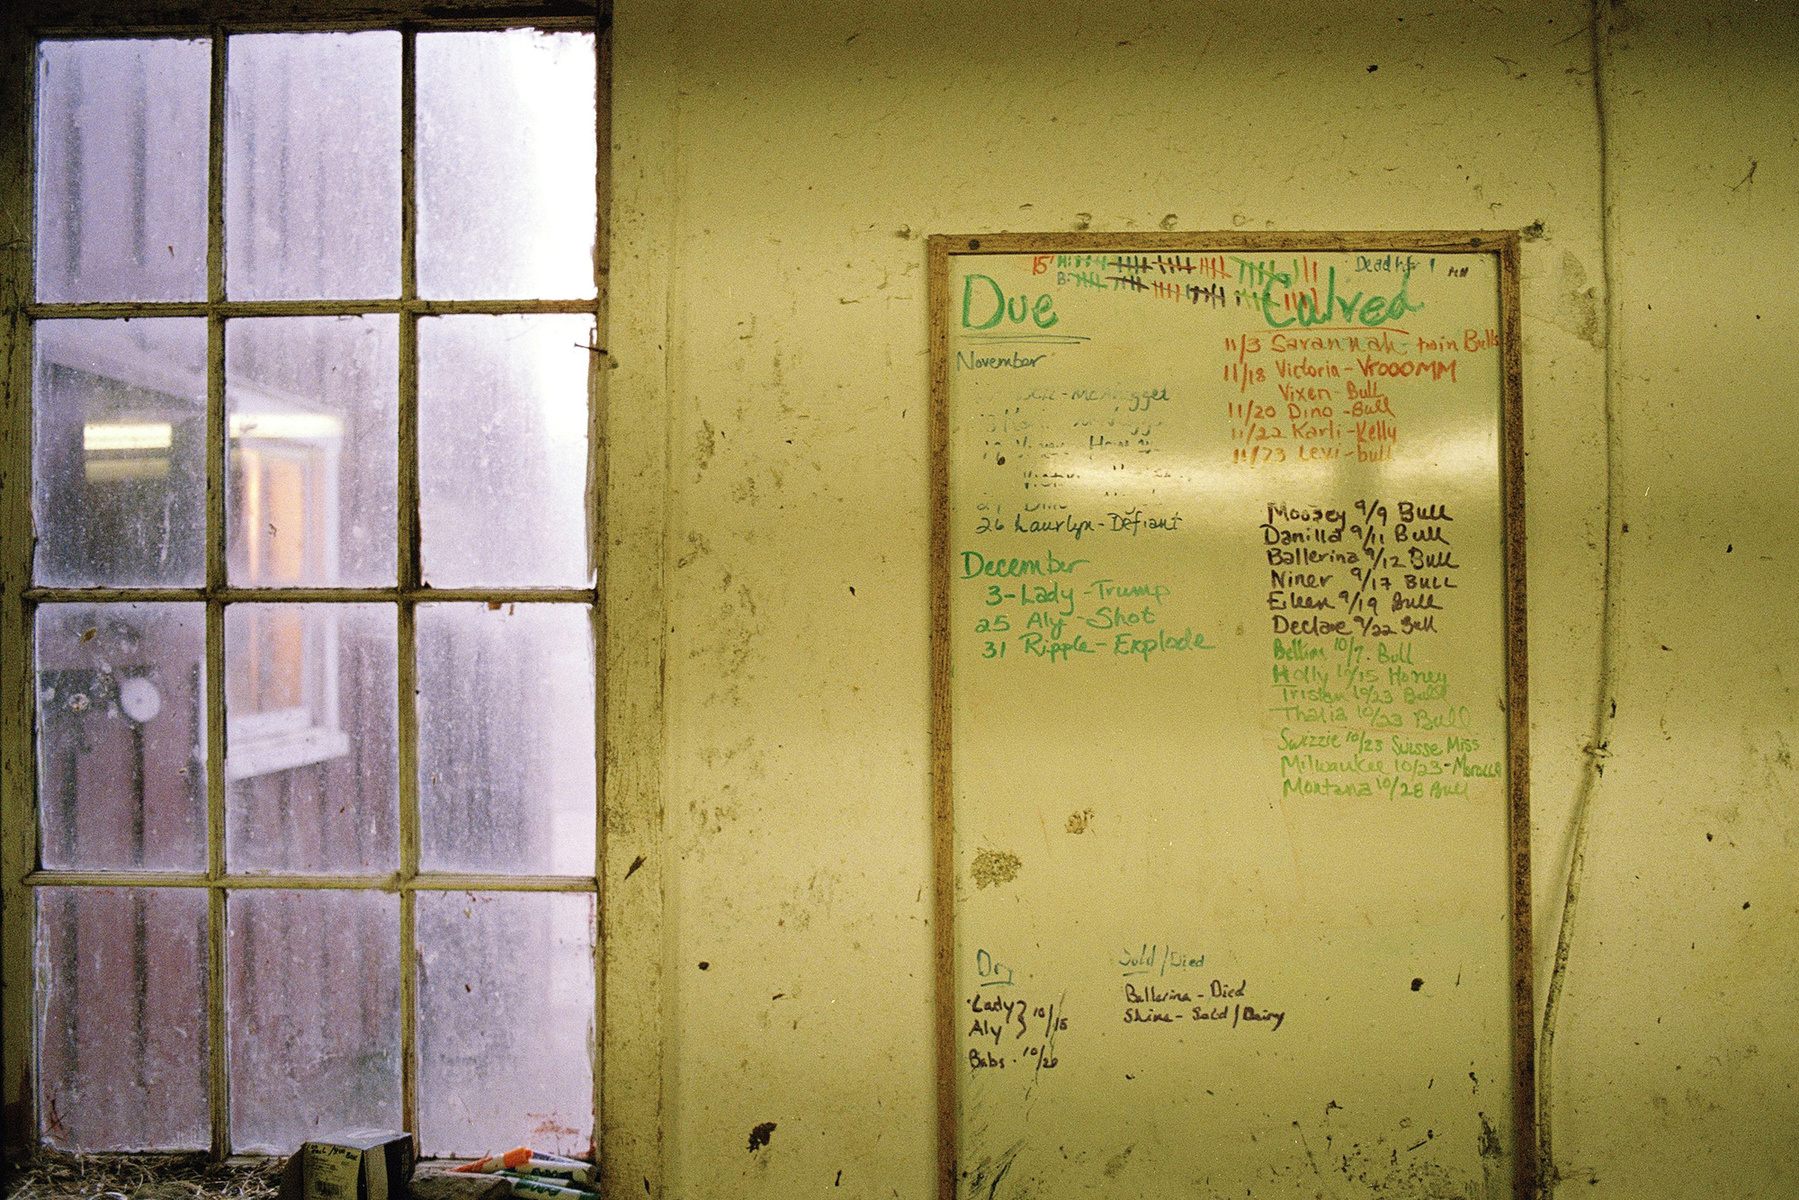 15
Dead hfr 1
B:
Due
Calved
November
26 Laurlyn - Defiant
December
3 - Lady - Trump
25 Aly - Shot
31 Ripple - Explode
11/3 Savannah - twin Bulls
11/18 Victoria - VroooMM
Vixen - Bull
11/20 Dino - Bull
11/22 Karli - Kelly
11/23 Levi - bull
Moosey 9/9 Bull
Danilla 9/11 Bull
Ballerina 9/12 Bull
Niner 9/17 BULL
Eileen 9/19 Bull
Declare 9/22 Bull
10/7 Bull
Holly 10/15 Honey
Tristan 10/23 Bull
Thalia 10/23 Bull
Swizzle 10/23 Suisse Miss
Milwaukee 10/23 -
Montana 10/28 Bull
Dry
Lady } 10/15
Aly
Babs - 10/20
Sold / Died
Ballerina - Died
Shine - Sold / Dairy